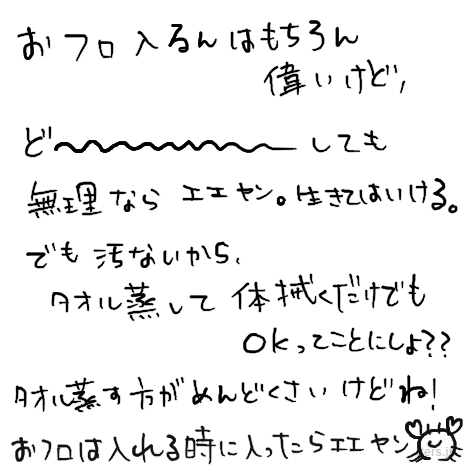 おフロ入るんはもちろん
偉いけど,
ど〜〜〜〜〜〜〜しても
無理なら エエヤン。生きてはいける。
でも 汚ないから、
タオル蒸して 体拭くだけでも
OKってことにしよ??
タオル蒸す方がめんどくさいけどね!
おフロは入れる時に入ったらエエヤン